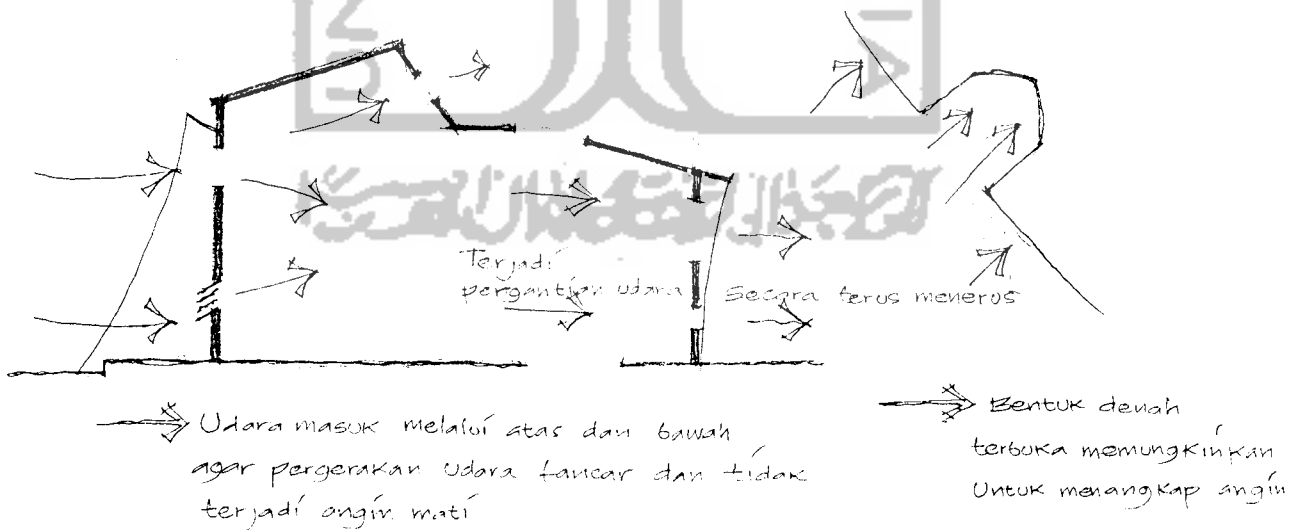 Terjadi
pergantian udara secara terus meneros
Udara masuk melalui atas dan bawah
agar pergerakan udara lancar dan tidak
terjadi angin mati
Bentuk denah
terbuka memungkinkan
Untuk menangkap angin